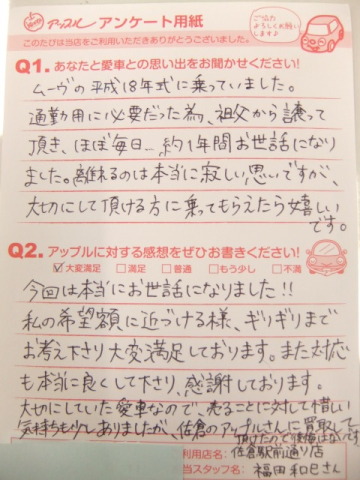 アップル アンケート用紙
ご協力
よろしくお願い
します♪
このたびは当店をご利用いただきありがとうございました。
Q1. あなたと愛車との思い出をお聞かせください!
ムーヴの平成18年式に乗っていました。
通勤用に必要だった為、祖父から譲って
頂き、ほぼ毎日、約1年間お世話になり
ました。離れるのは本当に寂しい思いですが、
大切にして頂ける方に乗ってもらえたら嬉しい
です。
Q2. アップルに対する感想をぜひお書きください!
☑大変満足 □満足 □普通 □もう少し □不満
今回は本当にお世話になりました!!
私の希望額に近づける様、ギリギリまで
お考え下さり大変満足しております。また対応
も本当に良くして下り、感謝しております。
大切にしていた愛車なので、売ることに対して惜しい
気持ちも少しありましたが、佐倉のアップルさんに買取して
頂けたので後悔はないです。
利用店名: 佐倉駅前通り店
当スタッフ名: 福田和巳さん